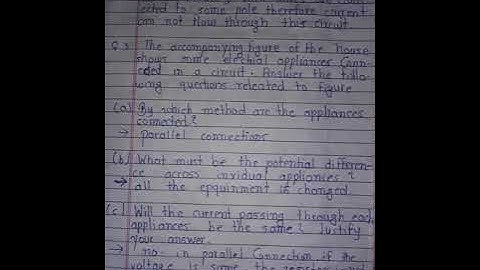 ected to some pole therefore current
can not flow through this circuit
Q.3 The accompanying figure of the house
shows some electrial appliances Conn-
ected in a circuit. Answer the follo-
wing questions releated to figure
(a) By which method are the appliances
connected?
→ parallel connections
(b) What must be the potential differen-
ce across invidual appliances?
→ all the epquinment is changed.
(c) Will the current passing through each
appliances be the same? Justify
your answer.
→ no. in parallel Connection if the
voltage is same the